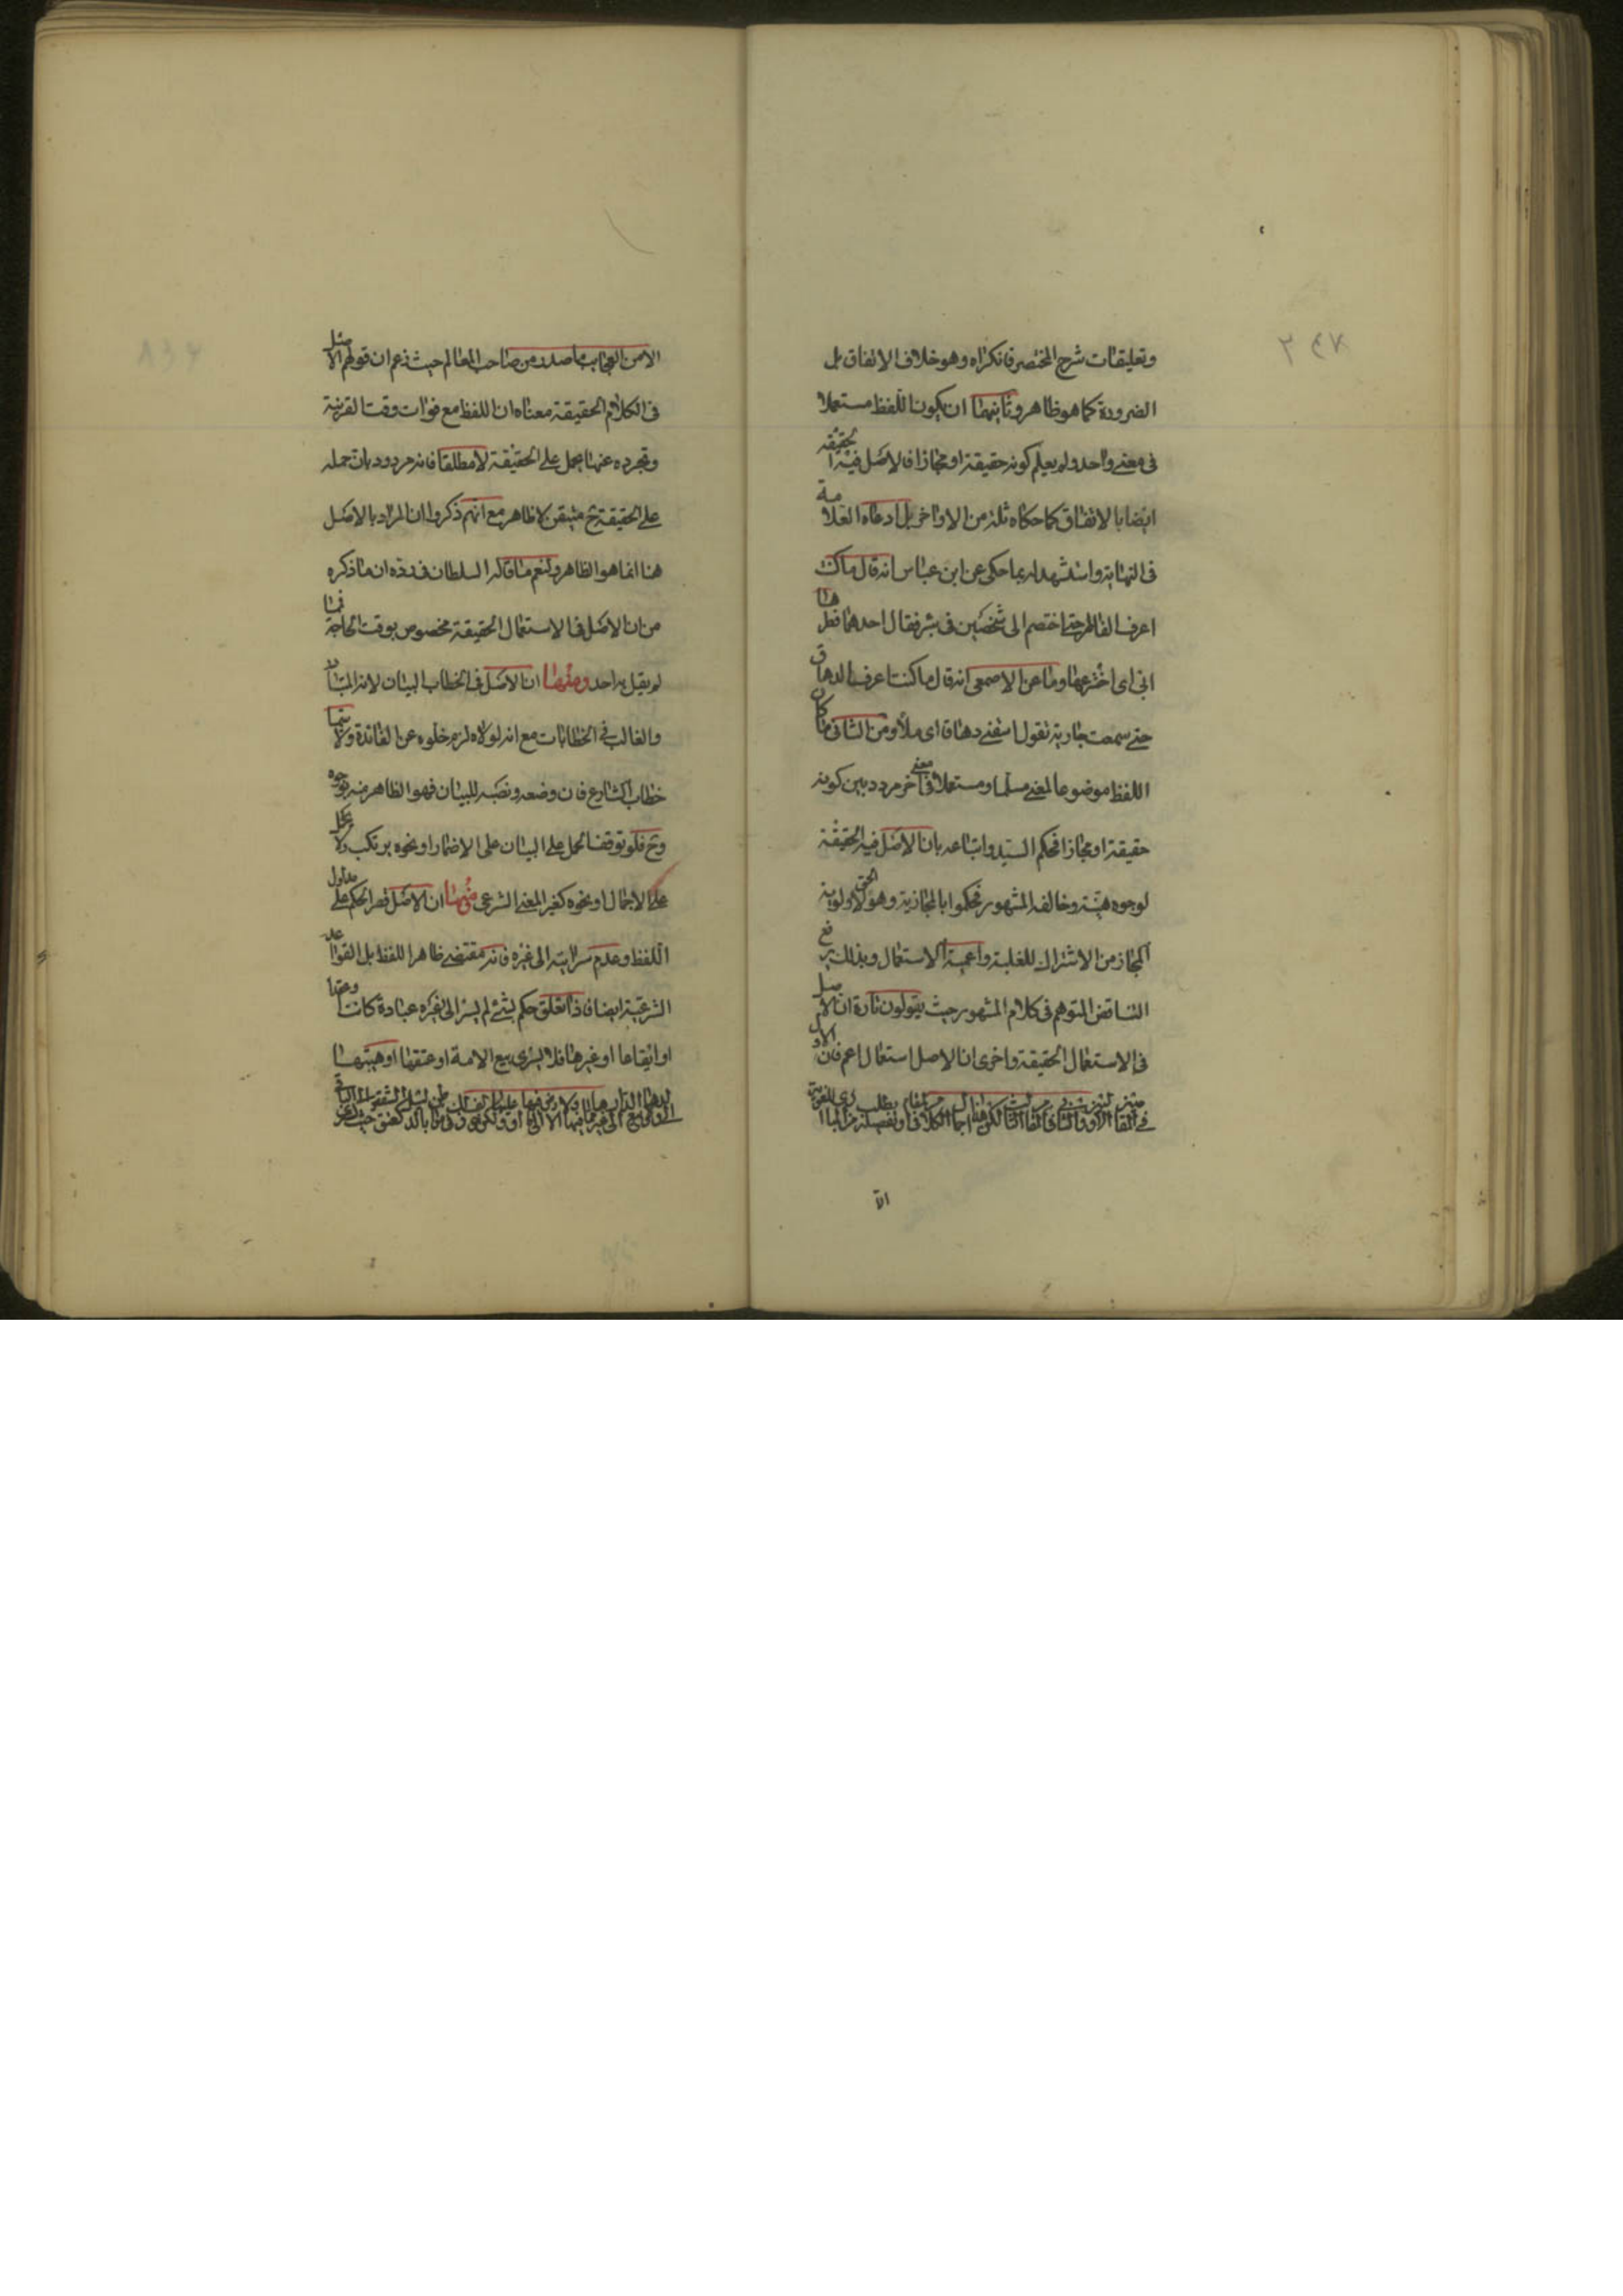 وتعليقات شرح المختصر فانكراه وهو خلاف الاتفاق بل
الضرورة كما هو ظاهر وثانيهما ان يكون اللفظ مستعملا
فى معنى واحد ولم يعلم كونه حقيقة او مجازا فالاصل فيه الحقيقة
ايضا بالاتفاق كما حكاه ثلة من الاواخر بل ادعاه العلامة
فى النهاية واستشهد له بما حكى عن ابن عباس انه قال ما كنت
اعرف الفاطر حتى اختصم الى شخصين فى بئر فقال احدهما فطرها
ابى اى اخترعها وما عن الاصمعى انه قال ما كنت اعرف الدهاق
حتى سمعت جارية تقول اسقنى دهاقا اى ملأ ومن الثانى ما كان
اللفظ موضوعا لمعنى مسلما ومستعملا فى معنى آخر مردد بين كونه
حقيقة او مجازا فحكم السيد واتباعه بان الاصل فيه الحقيقة
لوجوه هيّنة وخالفه المشهور فحكموا بالمجازية وهو الحق لاولوية
المجاز من الاشتراك للغلبة واعمية الاستعمال وبذلك يرفع
التناقض المتوهم فى كلام المشهور حيث يقولون تارة ان الاصل
فى الاستعمال الحقيقة واخرى ان الاصل استعمال اعم فان الاول
فى المقام الاول والثانى المقام الثانى
الا
الامر العجاب ما صدر من صاحب المعالم حيث زعم ان قولهم الاصل
فى الكلام الحقيقة معناه ان اللفظ مع فوات وقت القرينة
وتجرده عنها يحمل على الحقيقة لا مطلقا فانه مردود بان حمله
على الحقيقة ح متيقن لا ظاهر مع انهم ذكروا ان المراد بالاصل
هنا انما هو الظاهر ولنعم ما قاله السلطان فى رده ان ما ذكره
من ان الاصل فى الاستعمال الحقيقة مخصوص بوقت الحاجة مما
لم يقل به احد ومنها ان الاصل فى الخطاب البيان لانه المتبادر
والغالب فى الخطابات مع انه لولاه لزم خلوه عن الفائدة ولا سيما
خطاب الشارع فان وضعه ونصبه للبيان فهو الظاهر منه بوجوه
وح فلو توقف الحمل على البيان على الاضمار او نحوه يرتكب ولا يحمل
على الاجمال او نحوه كغير المعنى الشرعى ومنها ان الاصل قصر الحكم على مدلول
اللفظ وعدم سرايته الى غيره فانه مقتضى ظاهر اللفظ بل القواعد
الشرعية ايضا فاذا تعلق حكم بشئ لم يسر الى غيره عبادة كانت او عقدا
او ايقاعا او غيرها فلا يسرى بيع الامة او عتقها او هبتها